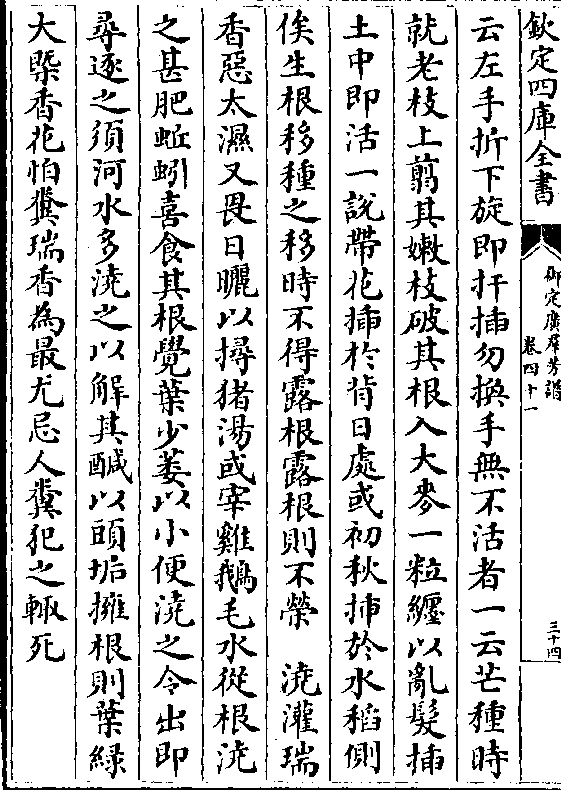 欽定四庫全書
御定廣羣芳譜
卷四十一
三十四
云左手折下旋即扦插勿換手無不活者一云芒種時
就老枝上剪其嫩枝破其根入大麥一粒纏以亂髮插
土中即活一説帶花插於背日處或初秋插於水稻側
俟生根移種之移時不得露根露根則不榮　澆灌瑞
香惡太濕又畏日曬以撏猪湯或宰雞鵝毛水從根澆
之甚肥蚯蚓喜食其根覺葉少萎以小便澆之令出即
尋逐之須河水多澆之以解其醎以頭垢擁根則葉緑
大槩香花怕糞瑞香為最尤忌人糞犯之輒死